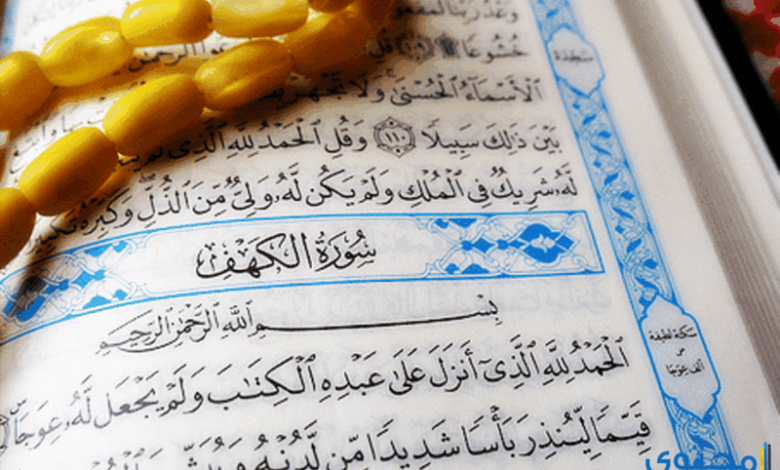 وَعْدُ رَبِّنَا لَمَفْعُولًا
خُشُوعًا ۩ ١٠٩ قُلِ ادْعُوا الرَّحْمَٰنَ
سَجْدَة
الْأَسْمَاءُ الْحُسْنَىٰ وَلَا تَجْهَرْ
بَيْنَ ذَٰلِكَ سَبِيلًا ١١٠ وَقُلِ الْحَمْدُ لِلَّهِ الَّذِي لَمْ
لَّهُ شَرِيكٌ فِي الْمُلْكِ وَلَمْ يَكُن لَّهُ وَلِيٌّ مِّنَ الذُّلِّ وَكَبِّرْهُ تَكْبِيرًا
سُورَةُ الْكَهْفِ
بِسْمِ اللَّهِ الرَّحْمَٰنِ الرَّحِيمِ
الْحَمْدُ لِلَّهِ الَّذِي أَنزَلَ عَلَىٰ عَبْدِهِ الْكِتَابَ وَلَمْ يَجْعَل لَّهُ عِوَجًا
سكتة لطيفة
ألف عوجا
قَيِّمًا لِّيُنذِرَ بَأْسًا شَدِيدًا مِّن لَّدُنْهُ وَيُبَشِّرَ
محتوى